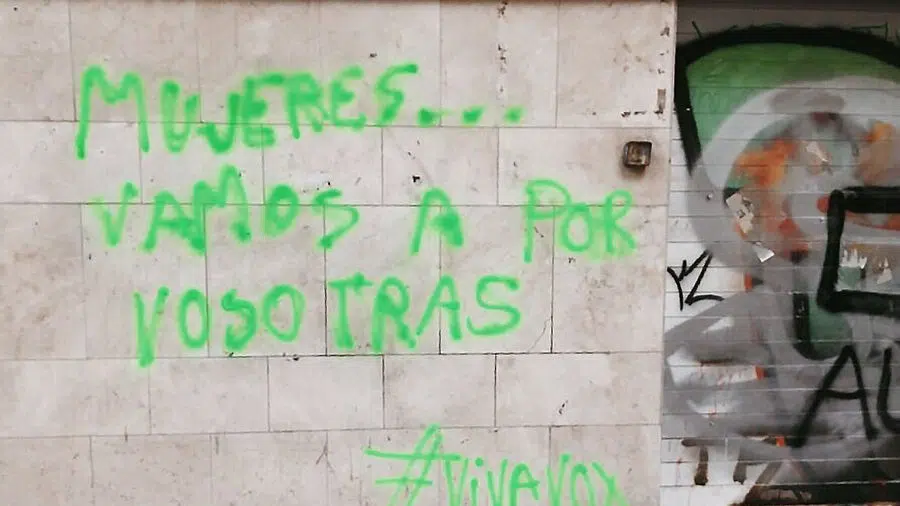 MUJERES...
VAMOS A POR
VOSOTRAS
#VIVAVOX